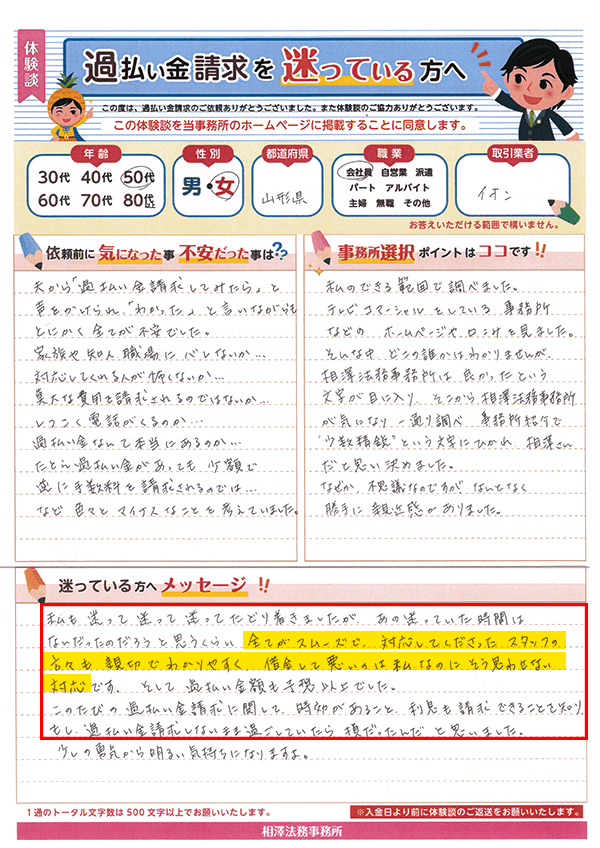 体験談
過払い金請求を 迷っている 方へ
この度は、過払い金請求のご依頼ありがとうございました。また体験談のご協力ありがとうございます。
この体験談を当事務所のホームページに掲載することに同意します。
年齢
30代 40代 50代
60代 70代 80代以上
性別
男・女
都道府県
山形県
職業
会社員 自営業 派遣
パート アルバイト
主婦 無職 その他
取引業者
イオン
お答えいただける範囲で構いません。
依頼前に 気になった事 不安だった事は??
夫から「過払い金請求してみたら」と
声をかけられ、「わかった」と言いながらも
とにかく全てが不安でした。
家族や知人、職場にバレないか…
対応してくれる人が怖くないか…
莫大な費用を請求されるのではないか…
しつこく電話がくるのか…
過払い金なんて本当にあるのか…
たとえ過払い金があっても少額で
逆に手数料を請求されるのでは…
など色々とマイナスなことを考えていました。
事務所選択 ポイントは ココです!!
私のできる範囲で調べました。
テレビコマーシャルをしている事務所
などの ホームページや口コミを見ました。
そんな中 どこの誰かはわかりませんが、
相澤法務事務所は良かったという
文字が目に入り、そこから相澤法務事務所
が気になり 一通り調べ 事務所紹介で
"少数精鋭"という文字にひかれ、相澤さん
だと思い決めました。
なぜか、不思議なのですが なんとなく
勝手に親近感がありました。
迷っている方へ メッセージ !!
私も迷って迷って迷ってたどり着きましたが、あの迷っていた時間は
なんだったのだろうと思うくらい 全てがスムーズで、対応してくださったスタッフの
方々も親切でわかりやすく、借金して悪いのは私なのに そう思わせない
対応です。 そして 過払い金額も予想以上でした。
このたびの過払い金請求に関して、時効があること、利息も請求できることを知り、
もし、過払い金請求しないまま過ごしていたら 損だったんだ と思いました。
少しの勇気から明るい気持ちになりますよ。
1通のトータル文字数は500文字以上でお願いいたします。
※入金日より前に体験談のご返送をお願いいたします。
相澤法務事務所